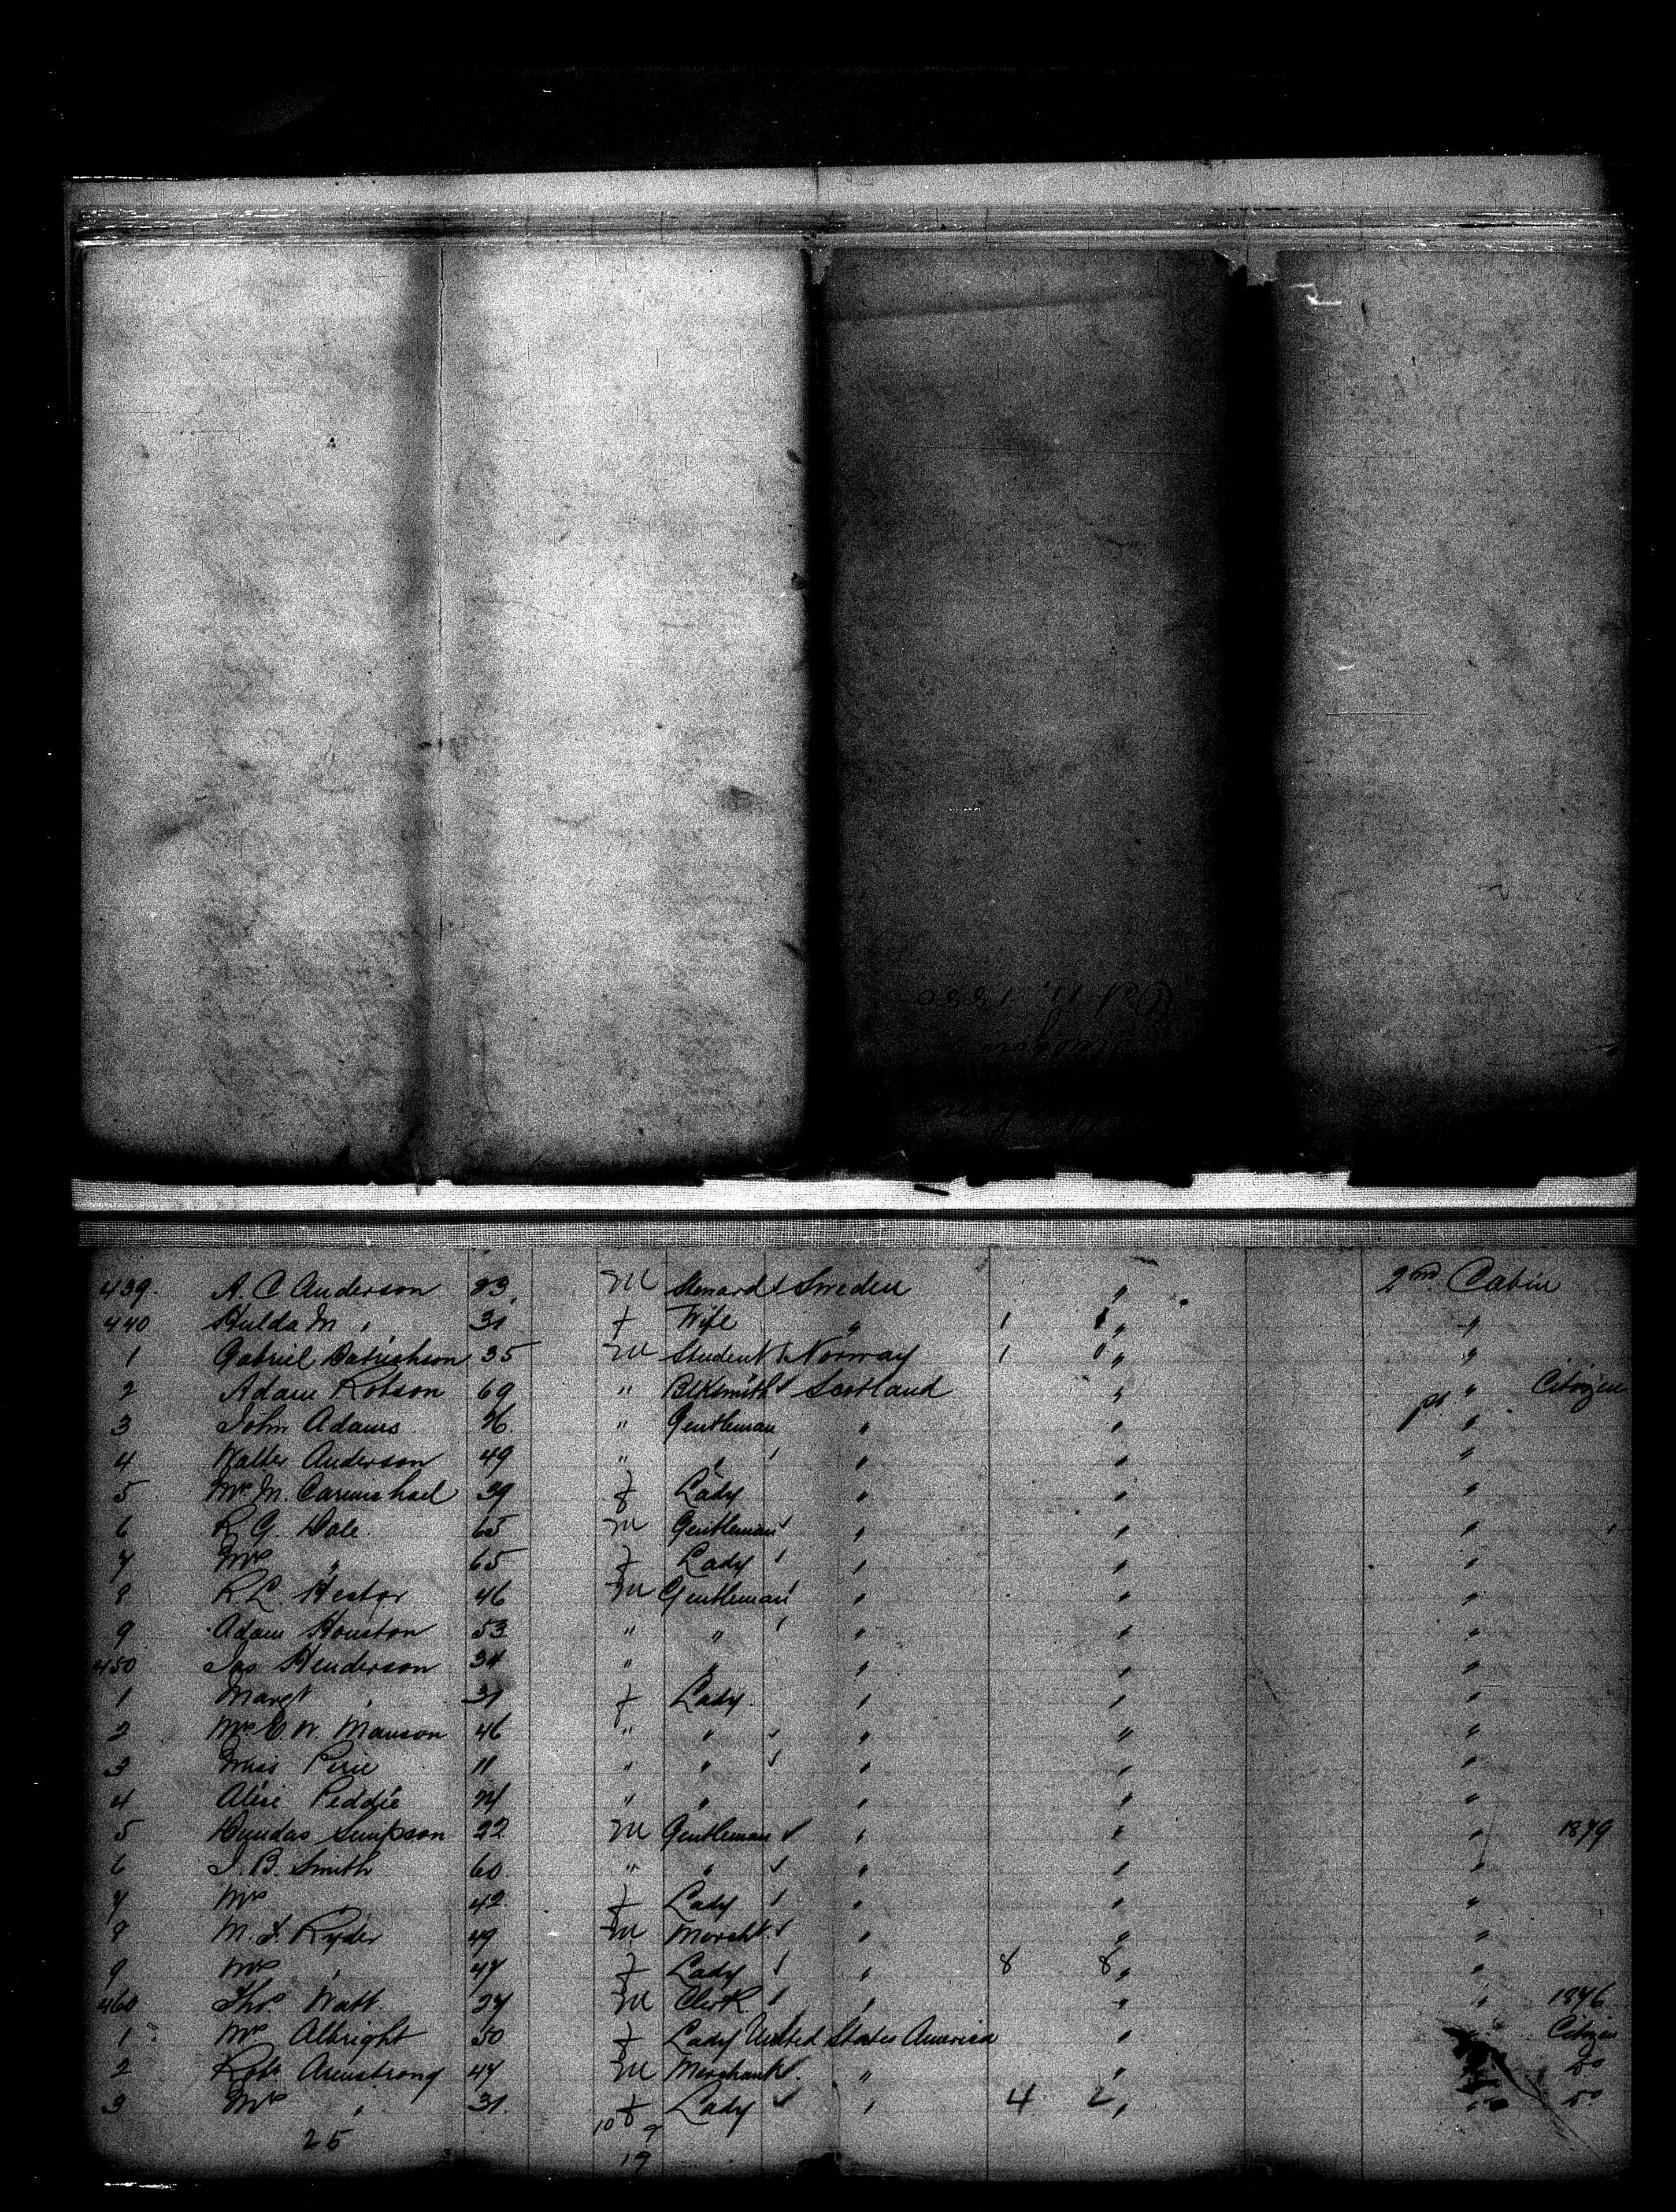 Oct 11, 1880
439. A. C Anderson 23. M Steward Sweden " 2nd Cabin
440 Hulda M " 31 f Wife " 1 " "
1 Gabriel 35 M Student Norway 1 0 " "
2 Adam Robson 69 " Blksmith Scotland " " Citizen
3 John Adams 26 " Gentleman " " "
4 Walter Anderson 49 " " " " "
5 Mrs M. Carmichael 39 f Lady " " "
6 R G. Dale. 65 M Gentleman " " "
7 Mrs " 65 f Lady " " "
8 R L. Hestor 46 M Gentleman " " "
9 Adam Houston 53 " " " " "
450 Jas Henderson 34 " " " " "
1 Margt " 31 f Lady " " "
2 Mrs E. W. Manson 46 " " " " "
3 Miss Pirie 11 " " " " "
4 Alice Peddie 24 " " " " "
5 Dundas Simpson 22 M Gentleman " " " 1879
6 J. B. Smith 60. " " " " "
7 Mrs " 42. f Lady " " "
8 M. F. Ryder 49 M Morcht. " " "
9 Mrs " 47 f Lady " 8 8 " "
460 Thos Watt. 27 M Clerk " " " 1876
1 Mrs Albright 50 f Lady United States America " Citizen
2 Robt Armstrong 47 M Merchant. " " Do
3 Mrs " 31. f Lady " 4 2 " " Do
25 10 9
19